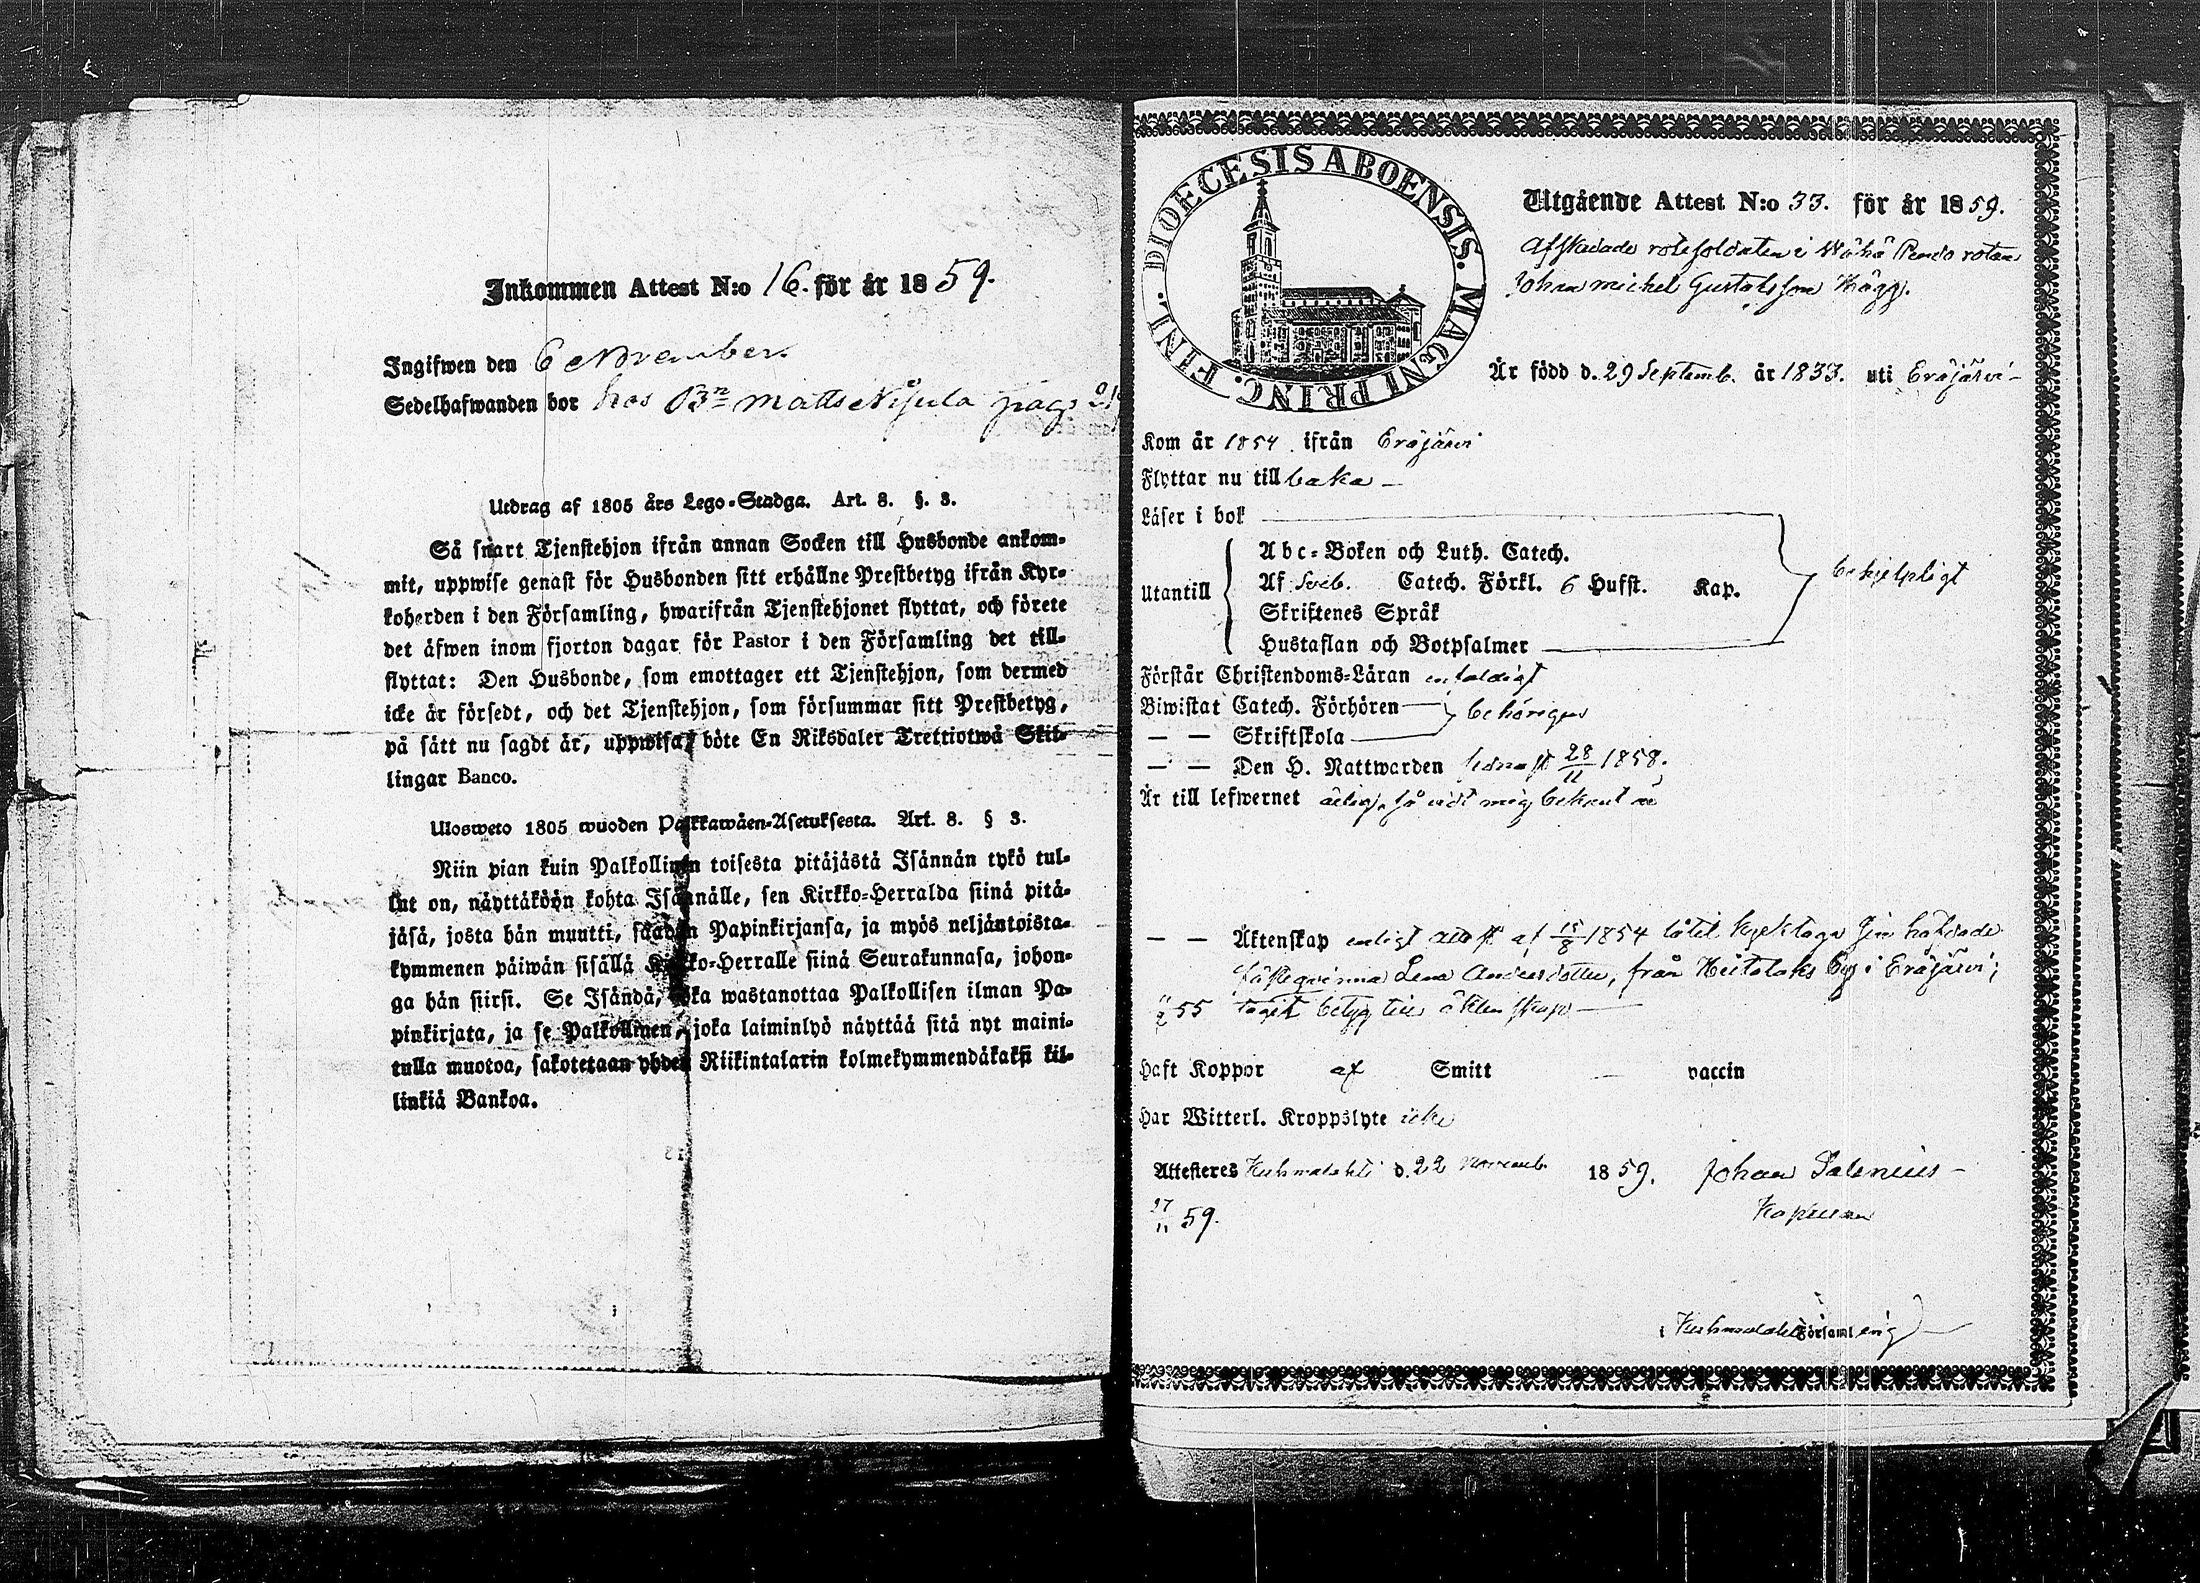 Inkommen Attest N:o 16. för år 1859.
Ingifwen den 6 November.
Sedelhafwanden bor hos Bn Matts Nijula pag.
Utdrag af 1805 års Lego-Stadga. Art. 8. §. 3.
Så snart Tjenstehjon ifrån annan Socken till Husbonde ankom-
mit, uppwise genast för Husbonden sitt erhållne Prestbetyg ifrån Kyr-
koherden i den Församling, hwarifrån Tjenstehjonet flyttat, och förete
det äfwen inom fjorton dagar för Pastor i den Församling det till-
flyttat: Den Husbonde, som emottager ett Tjenstehjon, som dermed
icke är försedt, och det Tjenstehjon, som försummar sitt Prestbetyg,
på sätt nu sagdt är, uppwisa, böte En Riksdaler Trettiotwå Skil-
lingar Banco.
Ulosweto 1805 wuoden Palkkawäen-Asetuksesta. Art. 8. § 3.
Niin pian kuin Palkollinen toisesta pitäjästä Isännän tykö tul-
lut on, näyttäköön kohta Isännälle, sen Kirkko-Herralda siinä pitä-
jäsä, josta hän muutti, saadun Papinkirjansa, ja myös neljäntoista-
kymmenen päiwän sisällä Kirkko-Herralle siinä Seurakunnasa, johon-
ga hän siirsi. Se Isändä, joka wastanottaa Palkollisen ilman Pa-
pinkirjata, ja se Palkollinen, joka laiminlyö näyttää sitä nyt maini-
tulla muotoa, sakotetaan yhden Riikintalarin kolmekymmendäkaksi kil-
linkiä Bankoa.
DIOECESIS ABOENSIS. MAGNI PRINC. FINL.
Utgående Attest N:o 33. för år 1859.
Afskedade rotesoldaten i Wähä Pento rotan
Johan Michel Gustafsson Hägg.
Är född d. 29 Septemb. år 1833. uti Eräjärvi -
Kom år 1854 ifrån Eräjärvi
Flyttar nu till baka -
Läser i bok
Abc-Boken och Luth. Catech.
Utantill Af Sveb. Catech. Förkl. 6 Hufst. Kap. behjelpligt
Skriftenes Språk
Hustaflan och Botpsalmer
Förstår Christendoms-Läran enfaldigt
Biwistat Catech. Förhören behörigen
— — Skriftskola
— — Den H. Nattwarden sednast 28/11 1858.
Är till lefwernet ärlig, så vidt mig bekant är
— — Äktenskap enligt attest af 15/8 1854 låtit kyrktaga sin häfdade
fästeqvinna Lena Andersdotter, från Hietalaks by i Eräjärvi;
55 tagit betyg till äktenskap —
Haft Koppor af Smitt — vaccin
Har Witterl. Kroppslyte icke
Attesteres Kuhmalahti d. 22 Novemb. 1859. Johan Salenius -
27/11 59. Kapellan
i Kuhmalahti Församling